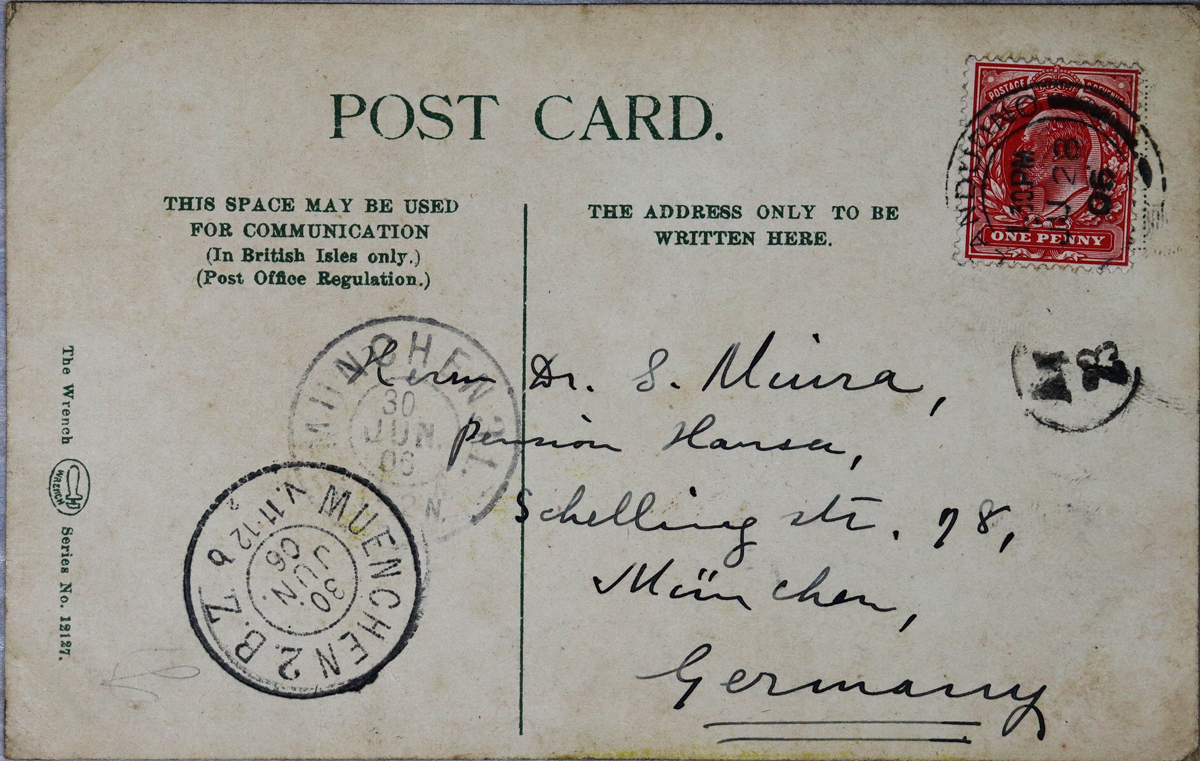 POST CARD.
THIS SPACE MAY BE USED
FOR COMMUNICATION
(In British Isles only.)
(Post Office Regulation.)
THE ADDRESS ONLY TO BE
WRITTEN HERE.
POSTAGE
ONE PENNY
30 PM
28
06
M
B
Herrn Dr. S. Miura,
Pension Hansa,
Schelling str. 78,
München,
Germany
MÜNCHEN
30
JUN.
06
N.
MUENCHEN 2 B.Z.
V. 11-12
30
JUN.
06
The Wrench
WRENCH
Series No. 12127.